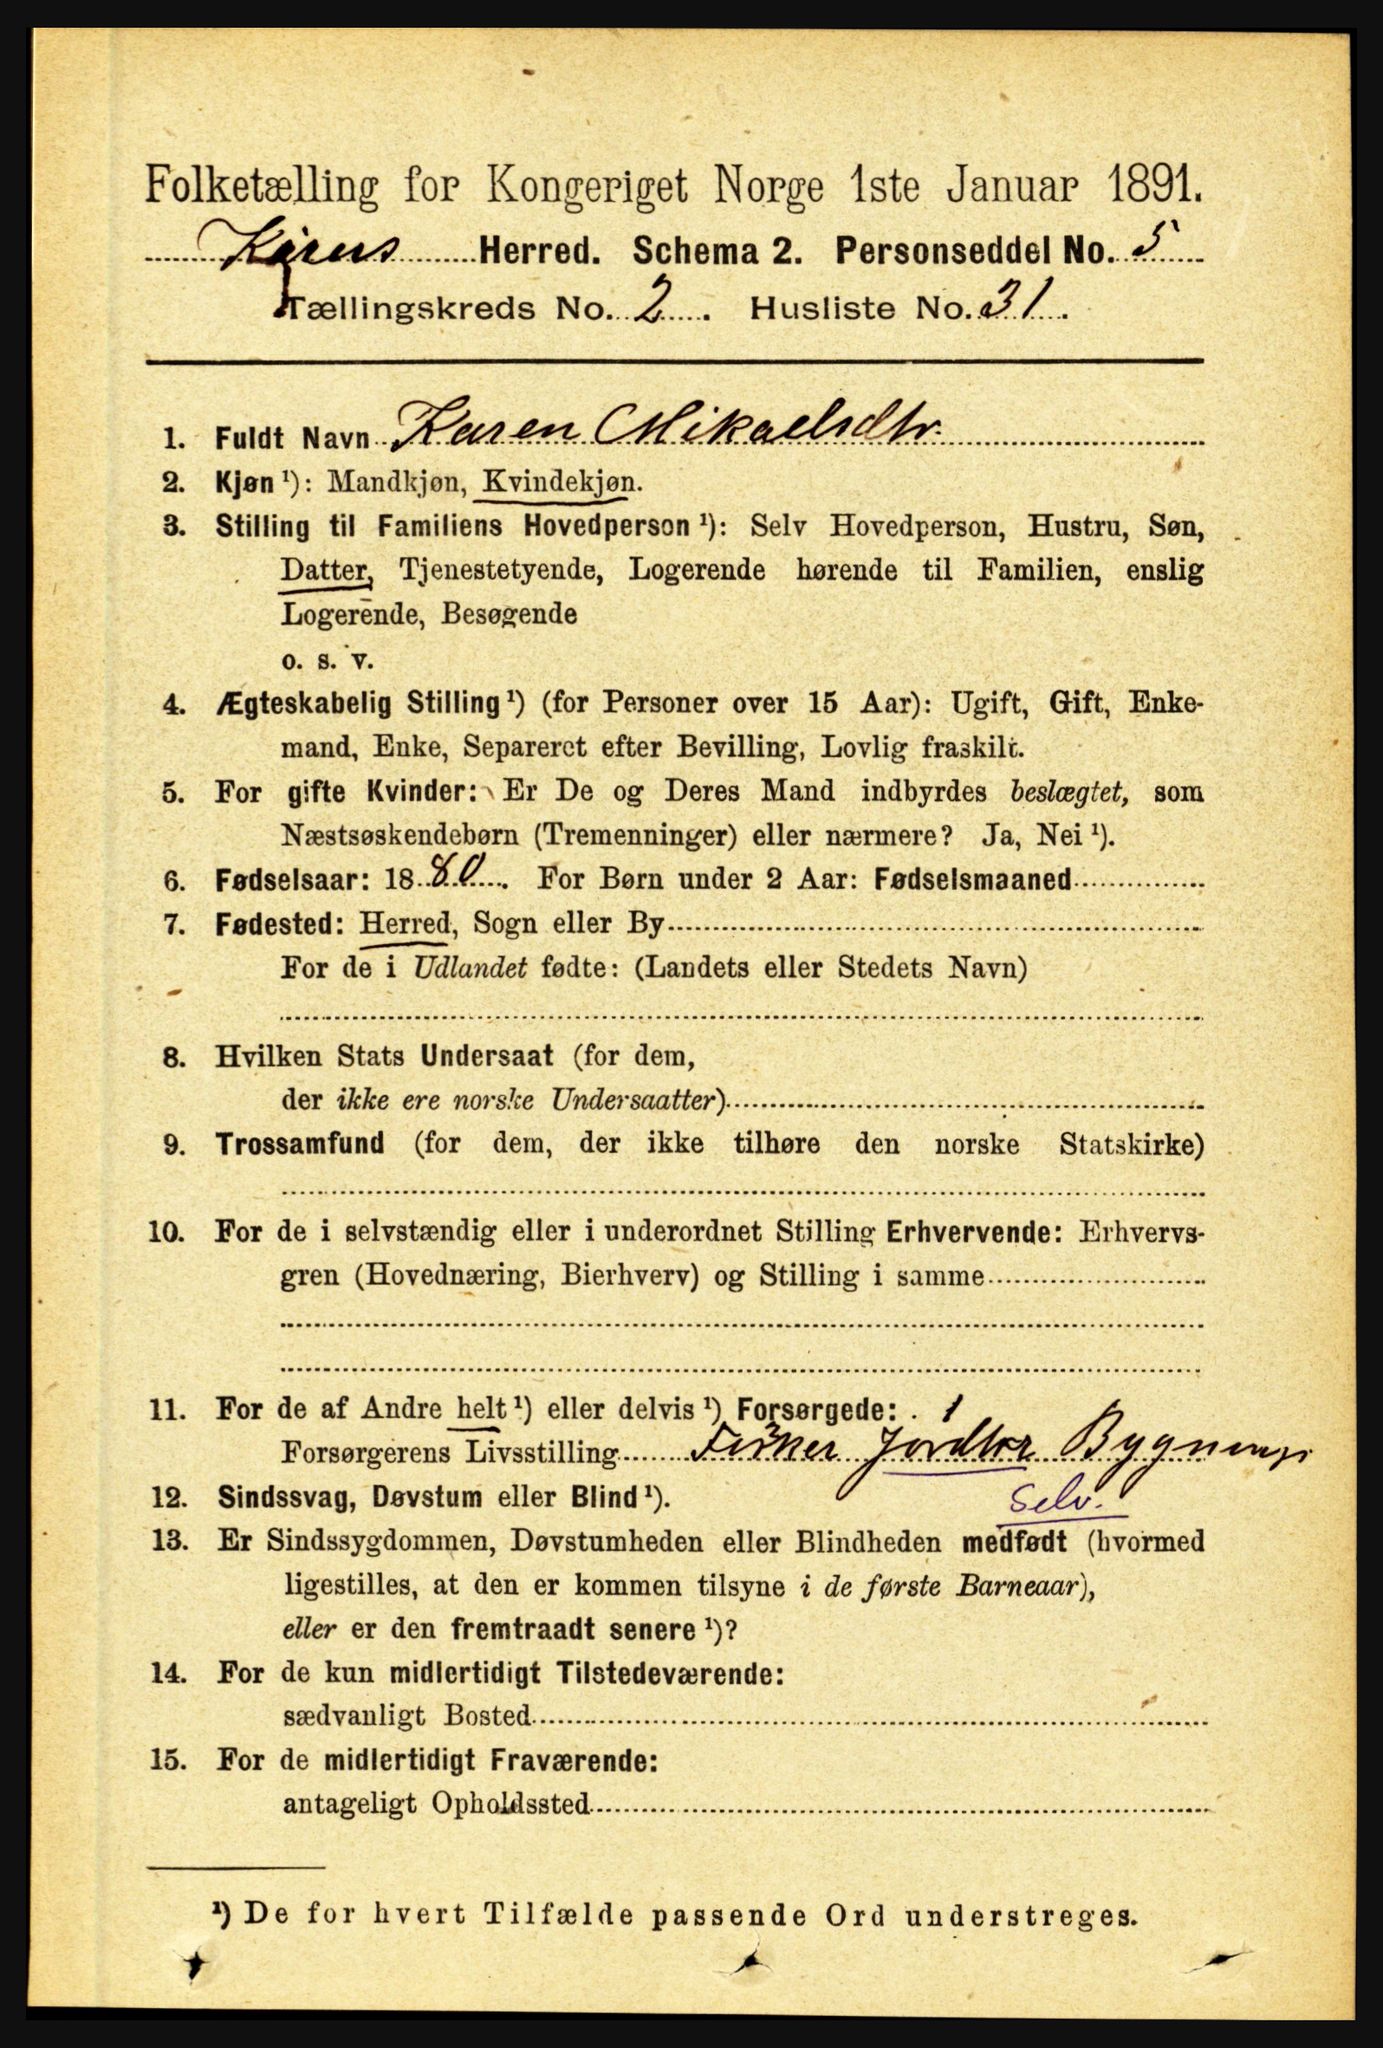 Folketælling for Kongeriget Norge 1ste Januar 1891.
Herred. Schema 2. Personseddel No. 5
Tællingskreds No. 2. Husliste No. 31.
1. Fuldt Navn Karen Mikaelsdtr.
2. Kjøn ¹): Mandkjøn, Kvindekjøn.
3. Stilling til Familiens Hovedperson ¹): Selv Hovedperson, Hustru, Søn,
Datter, Tjenestetyende, Logerende hørende til Familien, enslig
Logerende, Besøgende
o. s. v.
4. Ægteskabelig Stilling ¹) (for Personer over 15 Aar): Ugift, Gift, Enke-
mand, Enke, Separeret efter Bevilling, Lovlig fraskilt.
5. For gifte Kvinder: Er De og Deres Mand indbyrdes beslægtet, som
Næstsøskendebørn (Tremenninger) eller nærmere? Ja, Nei ¹).
6. Fødselsaar: 1880. For Børn under 2 Aar: Fødselsmaaned
7. Fødested: Herred, Sogn eller By
For de i Udlandet fødte: (Landets eller Stedets Navn)
8. Hvilken Stats Undersaat (for dem,
der ikke ere norske Undersaatter)
9. Trossamfund (for dem, der ikke tilhøre den norske Statskirke)
10. For de i selvstændig eller i underordnet Stilling Erhvervende: Erhvervs-
gren (Hovednæring, Bierhverv) og Stilling i samme
11. For de af Andre helt ¹) eller delvis ¹) Forsørgede:
Forsørgerens Livsstilling Fisker Jordbr Bygnings
Selv.
12. Sindssvag, Døvstum eller Blind ¹).
13. Er Sindssygdommen, Døvstumheden eller Blindheden medfødt (hvormed
ligestilles, at den er kommen tilsyne i de første Barneaar),
eller er den fremtraadt senere ¹)?
14. For de kun midlertidigt Tilstedeværende:
sædvanligt Bosted
15. For de midlertidigt Fraværende:
antageligt Opholdssted
¹) De for hvert Tilfælde passende Ord understreges.